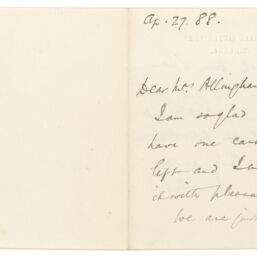 Ap. 27. 88.
Dear Mrs. Allingham
I am so glad
have one card
left and I
it with pleas
We are just